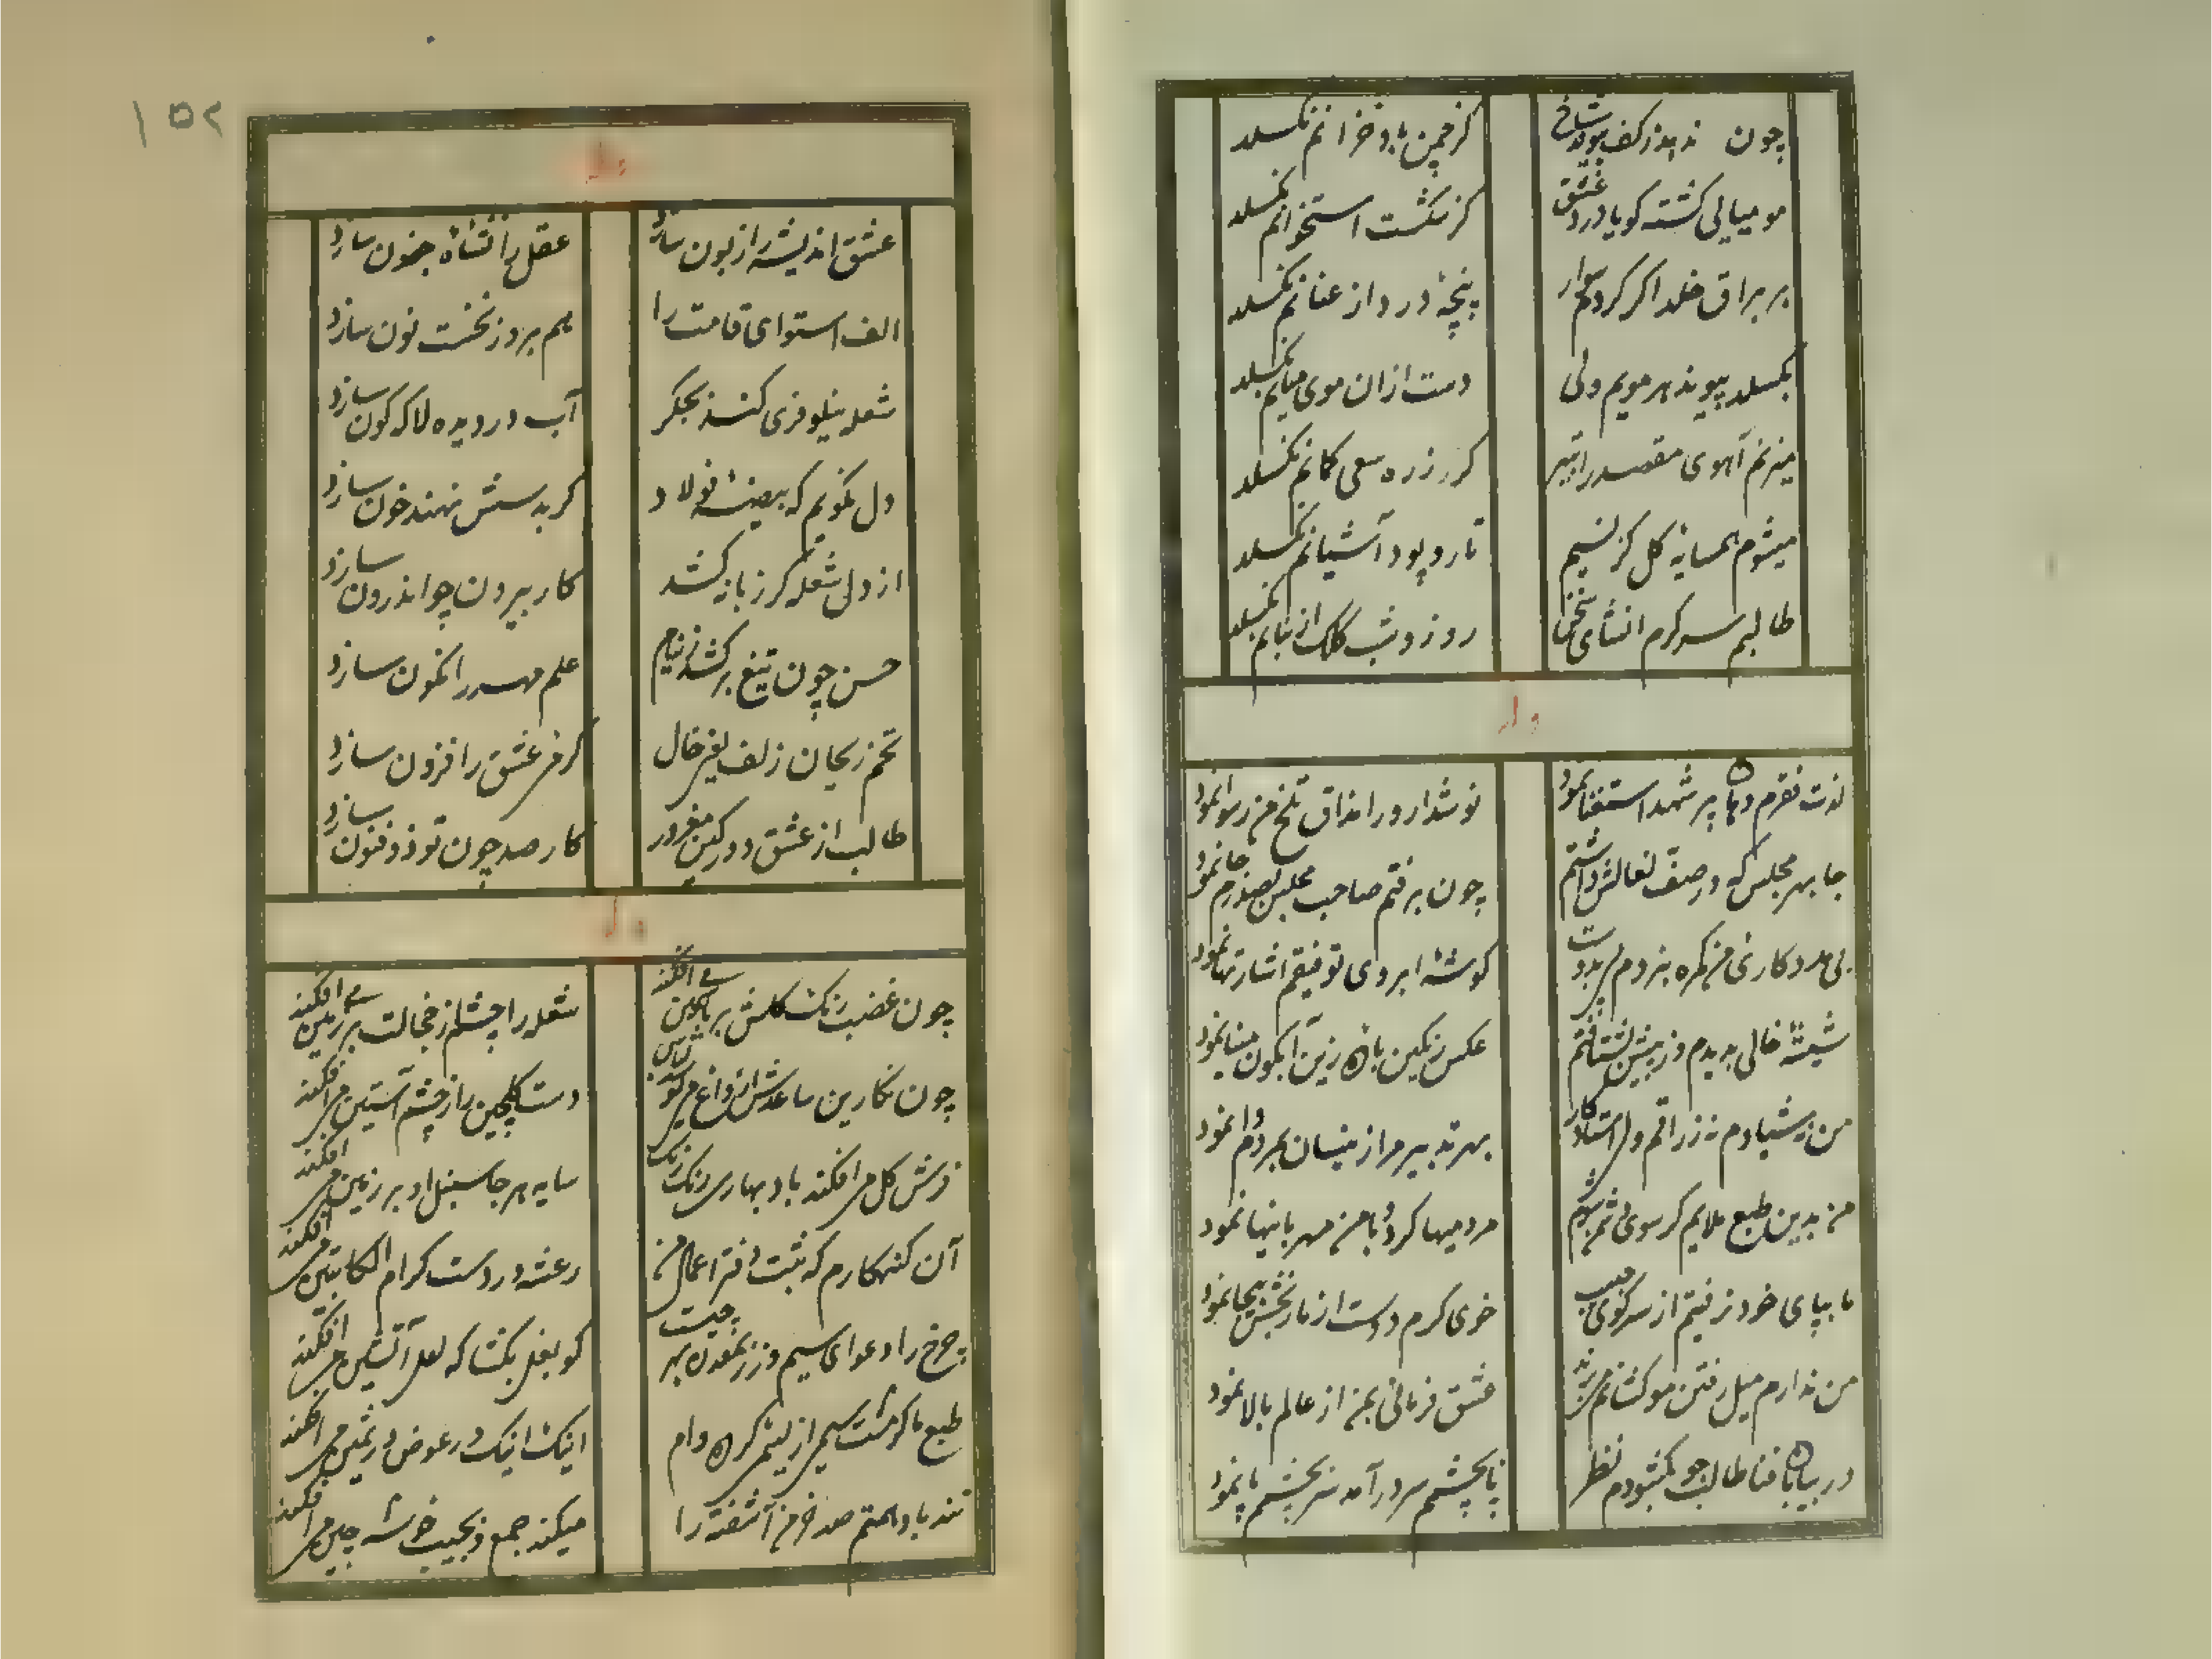 چون ندهد ز کف پیوند شاخ
گر چمن باد خزانم نگسلد
مومیایی گشته گویا درد عشق
کز شکست استخوانم نگسلد
بر براق خلد اگر کردم سوار
پنجهٔ درد از عنانم نگسلد
بگسلد پیوند هر مویم ولی
دست ازان موی میانم نگسلد
میزنم آهوی مقصد را بتیر
گر زره سعی کمانم نگسلد
میشوم همسایهٔ گل گر نسیم
تار و پود آشیانم نگسلد
طالبم سرگرم انشای سخن
روز و شب کلک از بنانم نگسلد
وله
لذت فقرم دهان پر شهد استغنا نمود
نوشدارو را مذاق تلخ من رسوا نمود
جا بهر مجلس که در صف نعالش داشتم
چون برفتم صاحب مجلس بصدرم جا نمود
بی مددکاری من گمره بنزدم پی بدوست
گوشهٔ ابروی توفیقم اشارتها نمود
شیشهٔ خالی بدیدم وز پیش نشتافتم
عکس رنگین باده زین آبگون مینا نمود
من نه شیادم نه زراقم ولی استاد کار
بهر تدبیرم ازینسان بمردم وا نمود
من بدین طبع ملایم گر سوی دشمن شوم
مردمیها کرده با من مهربانیها نمود
ما بپای خود نرفتیم از سر کوی حبیب
خوی گرم دوست از ما رنجش بیجا نمود
من ندارم میل رفتن موکشانم میبرند
عشق فرمانی بمن از عالم بالا نمود
در بیابان فنا طالب چو بگشودم نظر
پا بچشمم سر درآمد سر بچشمم پا نمود
۱۵۲
وله
عشق اندیشه را زبون سازد
عقل را نشاهٔ جنون سازد
الف استوای قامت را
هم بروز نخست نون سازد
شعله نیلوفری کند بجگر
آب در دیده لاله گون سازد
دل نگویم که بیضهٔ فولاد
گر بدستش نهند خون سازد
از دلی شعله گر زبانه کشد
کار بیرون چو اندرون سازد
حسن چون تیغ برکشد ز نیام
علم مهر را نگون سازد
تخم ریحان زلف یعنی خال
گرمی عشق را فزون سازد
طالب از عشق دور کین مغرور
کار صد چون تو ذوفنون سازد
وله
چون غضب رنگ گلش بر یاسمین می افکند
شعله را چشم از خجالت بر زمین می افکند
چون نگارین ساعدش از داغ میگردد سپس
دست گلچین را ز چشم آستین می افکند
فرش گل می افکند باد بهاری رنگ رنگ
سایه هر جا سنبل او بر زمین می افکند
آن گنهکارم که ثبت دفتر اعمال من
رعشه در دست کرام الکاتبین می افکند
چرخ را دعوای سیم و زر نمودن بهر چیست
گو بغل بگشا که لعل آتشین می افکند
طبع ما گر مشت سیمی از لئیمی کرده وام
اینک اینک در عوض در ثمین می افکند
تند باد همتم صد خرمن آشفته را
میکند جمع و بجیب خوشه چین می افکند